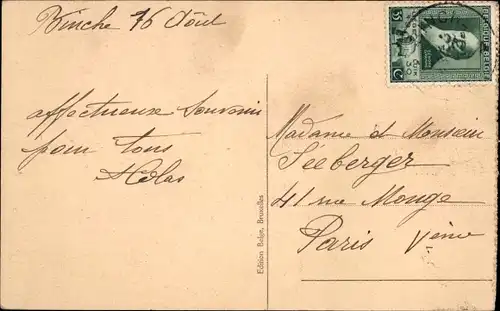 Binche 16 Août
affectueux Souvenir
pour tous
Madame et Monsieur
Seeberger
41 rue Monge
Paris Vème
Edition Belge, Bruxelles
BELGIQUE BELGIE
35 C